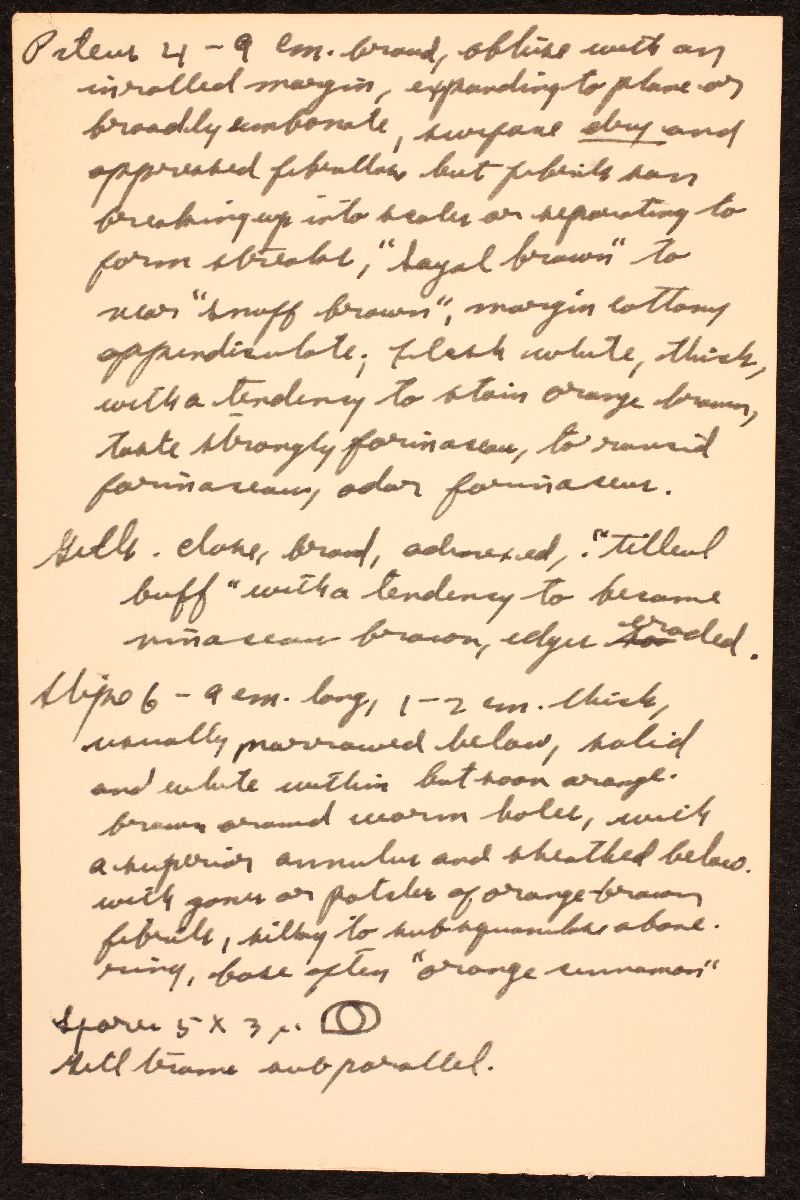 Pileus 4 – 9 cm. broad, obtuse with an
inrolled margin, expanding to plane or
broadly umbonate, surface dry and
appressed fibrillose but fibrils soon
breaking up into scales or separating to
form streaks, "Sayal brown" to
near "snuff brown", margin cottony
appendiculate; flesh white, thick,
with a tendency to stain orange brown,
taste strongly farinaceous, to rancid
farinaceous, odor farinaceous.
Gills. close, broad, adnexed, "tilleul
buff" with a tendency to become
vinaceous brown, edges eroded.
Stipe 6 – 9 cm. long, 1 – 2 cm. thick,
usually narrowed below, solid
and white within but soon orange-
brown around worm holes, with
a superior annulus and sheathed below
with zones or patches of orange-brown
fibrils, silky to subsquamulose above
ring, base often "orange cinnamon"
Spores 5 x 3 µ.
Gill trama subparallel.